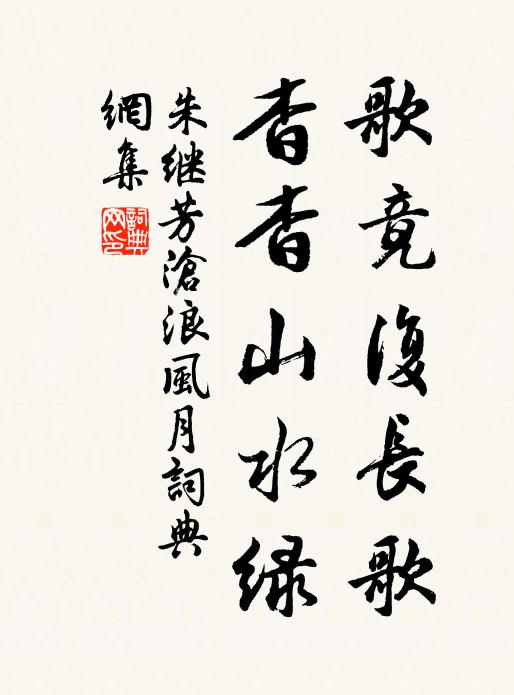 歌竟復長歌
杳杳山水緑
朱继芳滄浪風月詞典
網集
詞典
网印